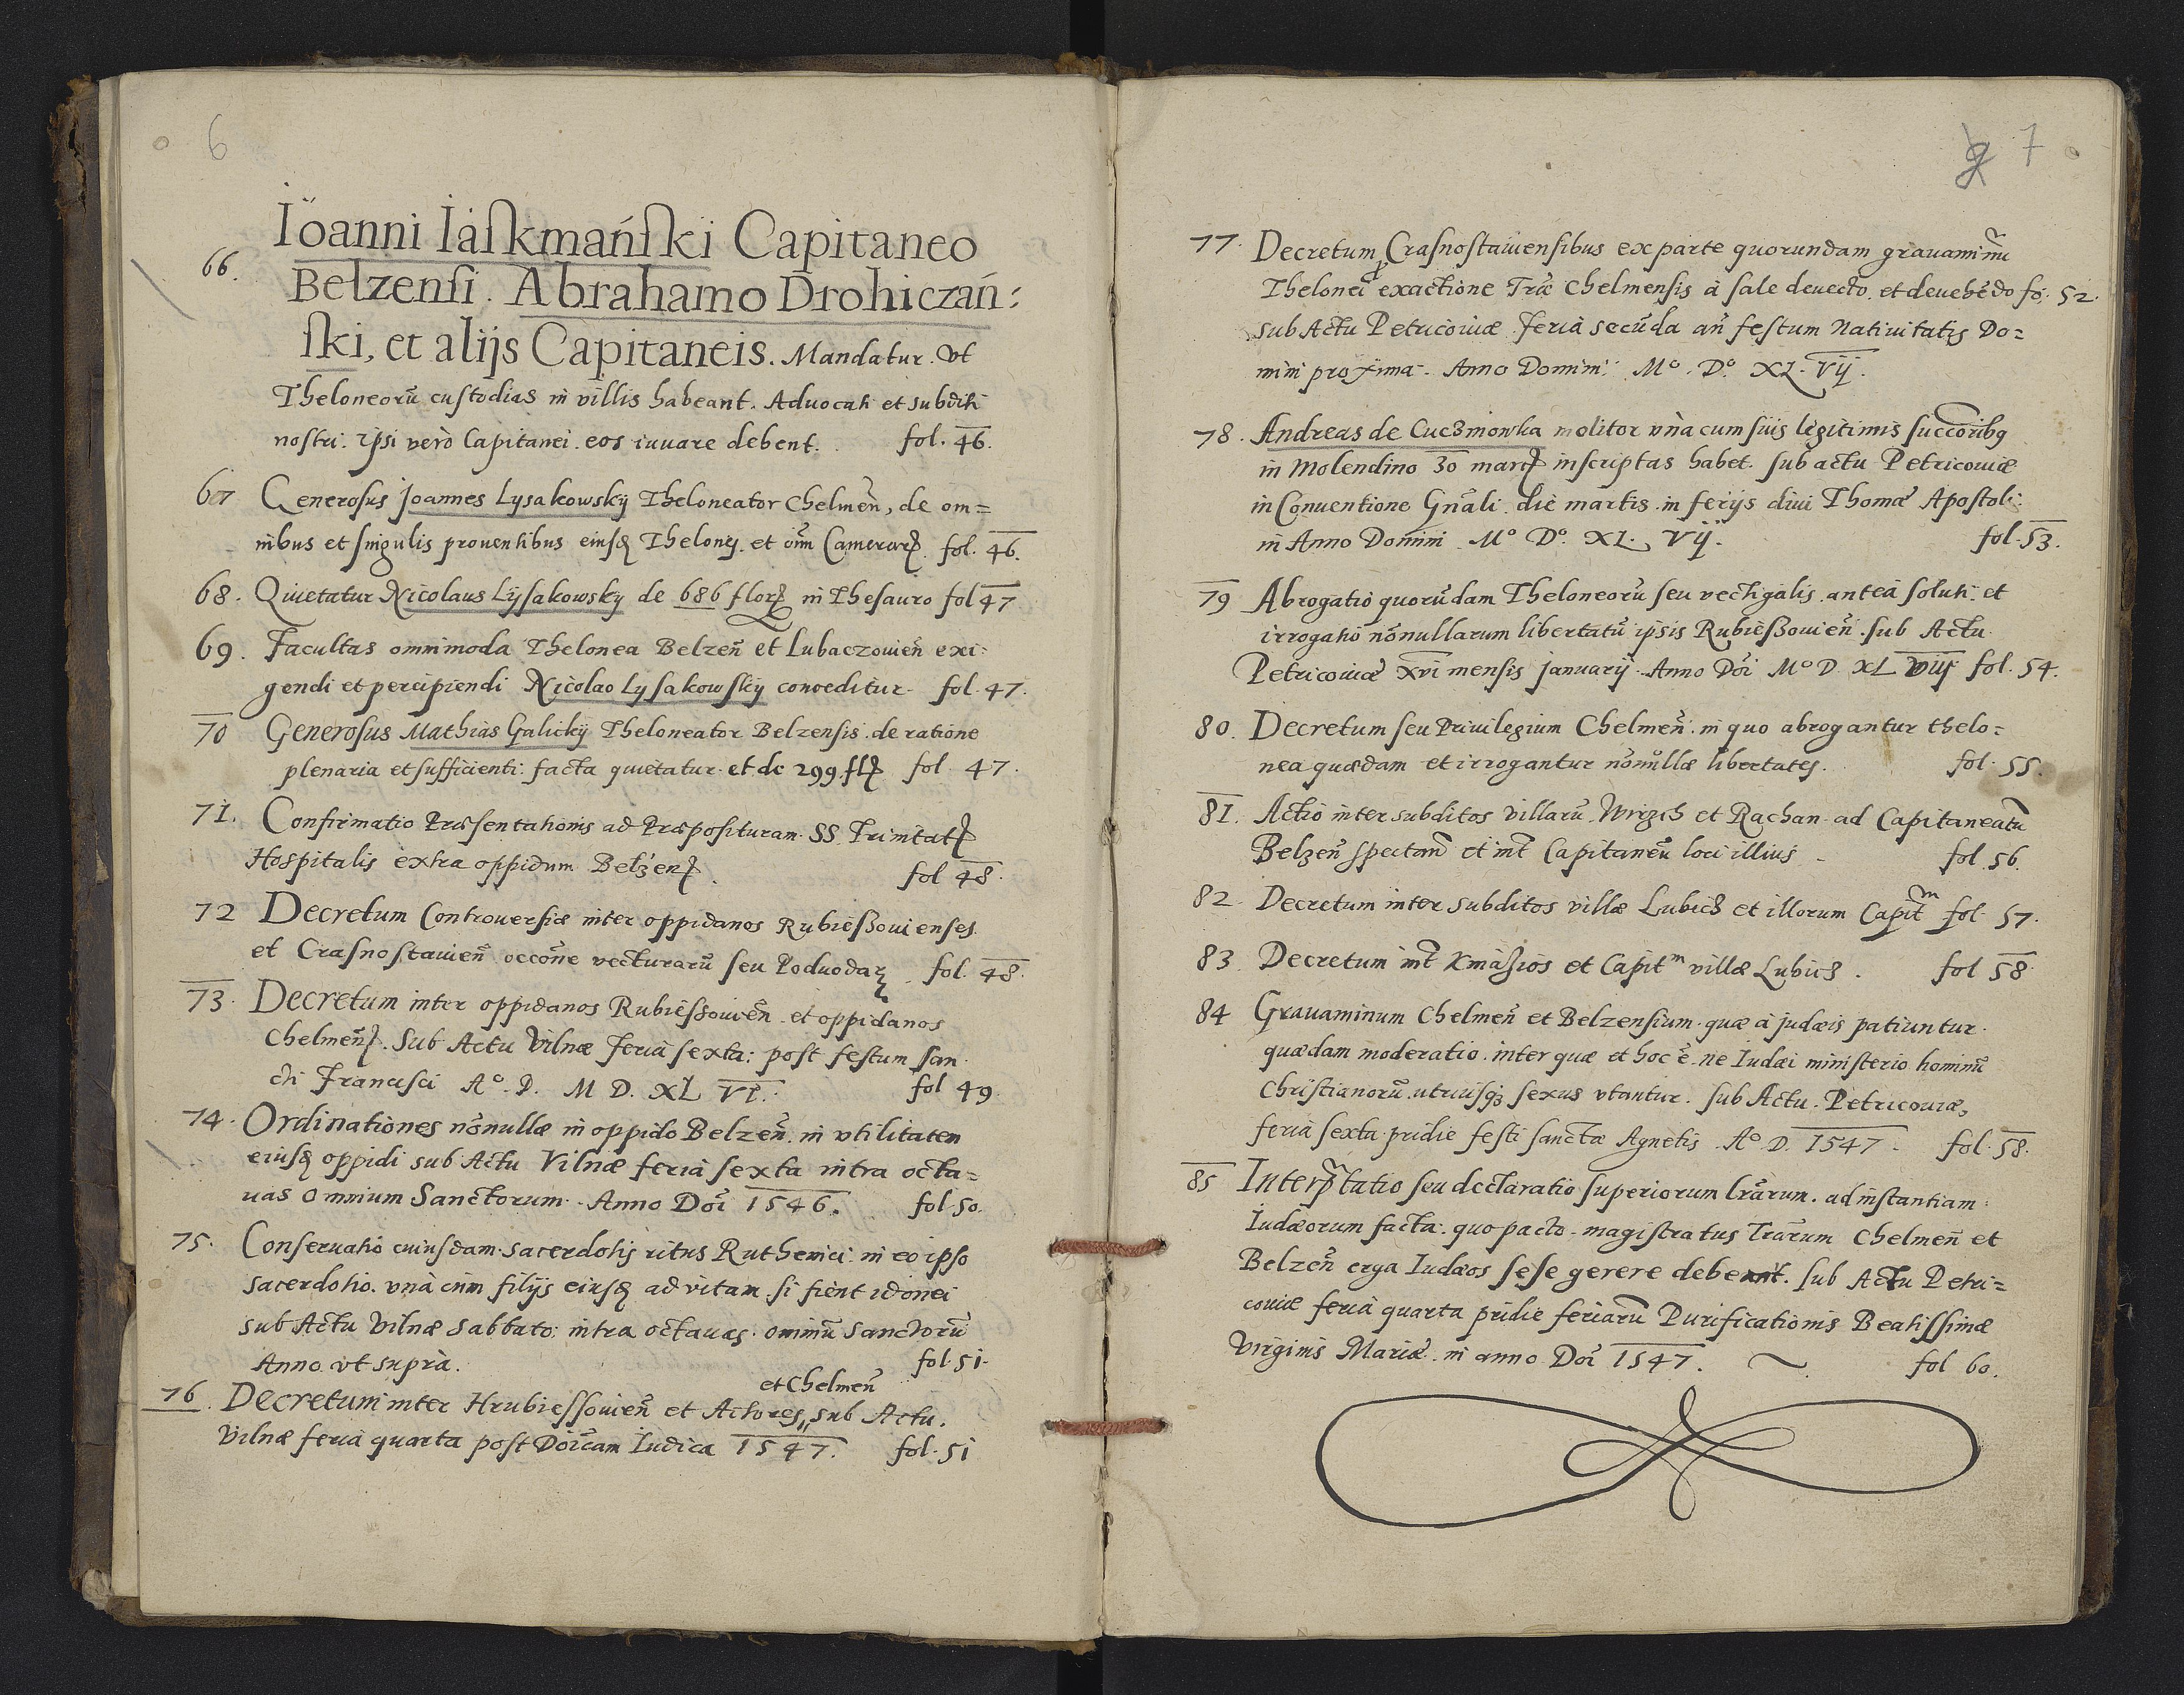 6
66. Ioanni Iaskmański Capitaneo
Belzensi. Abrahamo Drohiczań:
ski, et alijs Capitaneis. Mandatur. vt
Theloneorū custodias in villis habeant. Aduocati et subditi
nostri. Ipsi verò Capitanei. eos iuuare debent. fol. 46.
67 Generosus Joannes Lysakowskij Theloneator Chelmen̄, de om=
nibus et singulis prouentibus eiusd Thelonej. et oīm Camerar fol. 46.
68. Quietatur Nicolaus Lysakowsky de 686 flor in Thesauro fol 47
69. Facultas omnimoda Thelonea Belzen̄ et Lubaczouien̄ exi:
gendi et percipiendi Nicolao Lysakowskij conceditur. fol. 47.
70 Generosus Mathias Galickij Theloneator Belzensis. de ratione
plenaria et sufficienti. facta quietatur. et de 299. fl fol 47.
71. Confirmatio Præsentationis ad Præposituram. SS. Trinitat
Hospitalis extra oppidum Belzen fol 48.
72 Decretum Controuersiæ inter oppidanos Rubießouienses
et Crasnostauien̄ occōne vecturarū seu Poduodar fol. 48.
73. Decretum inter oppidanos Rubießouien̄ et oppidanos
Chelmen̄. Sub Actu Vilnæ feria sexta: post festum san
cti Francisci Aº. D. M D. XL VI. fol 49.
74. Ordinationes nōnullæ in oppido Belzen̄. in vtilitatem
eiusd oppidi sub Actu Vilnæ feria sexta intra octa=
uas Omnium Sanctorum. Anno Doī 1546. fol. 50.
75. Conseruatio cuiusdam. sacerdotis ritus Ruthenici. in eo ipso
sacerdotio. vnà cum filijs eiusd ad vitam. si fient idonei
sub Actu Vilnæ Sabbato: intra octauas. omniū Sanctorū
Anno vt suprà. fol. 51.
et Chelmen̄
76. Decretum inter Hrubiessouien̄ et Actores,, sub Actu.
Vilnæ feria quarta post Doīcam Iudica 1547. fol. 51
7
77. Decretum Crasnostauiensibus ex parte quorundam grauaminū
p Thelonei exactione Tr̄æ Chelmensis à sale deuecto. et deuehēdo fo. 52.
sub Actu Petricouiæ feria secūda an̄ festum Natiuitatis Do=
mini proxima. Anno Domini. Mº. Dº. XL. Vij.
78. Andreas de Cuczmowka molitor vnà cum suis legitimis succōribq
in Molendino 30 marc inscriptas habet. sub actu Petricouiæ
in Conuentione Gn̄ali. die martis. in ferijs diui Thomæ Apostoli.
in Anno Domini Mº Dº. XL. Vij. fol. 53.
79 Abrogatio quorūdam Theloneorū seu vectigalis. anteà soluti. et
irrogatio nōnullarum libertatū ipsis Rubießouien̄. sub Actu
Petricouiæ xvi mensis januarij. Anno Doī Mº D. XL viij fol. 54.
80. Decretum seu Priuilegium Chelmen̄. in quo abrogantur thelo=
nea quædam et irrogantur nōnullæ libertates. fol. 55.
81. Actio inter subditos villarū. Wrzgch et Rachan. ad Capitaneatū
Belzen̄ spectan̄ et int̄ Capitaneū loci illius fol. 56.
82. Decretum inter subditos villæ Lubicz et illorum Capitm fol. 57.
83. Decretum int̄ Kmæzios et Capitm villæ Lubicz. fol 58.
84 Grauaminum Chelmen̄ et Belzensium. quæ à judæis patiuntur.
quædam moderatio. inter quæ et hoc ē. ne Iudæi ministerio hominū
Christianorū. utriusq sexus vtantur. sub Actu. Petricouiæ,
feria sexta. pridie festi sanctæ Agnetis Aº D. 1547. fol. 58.
85 Interp̄tatio seu declaratio superiorum l̄rarum. ad instantiam
Iudæorum facta. quo pacto. magistratus Tr̄arum Chelmen̄ et
Belzen̄ erga Iudæos sese gerere debent. sub Actu Petri=
couiæ feria quarta pridie feriarū Purificationis Beatissimæ
Virginis Mariæ. in anno Doī 1547. fol 60.